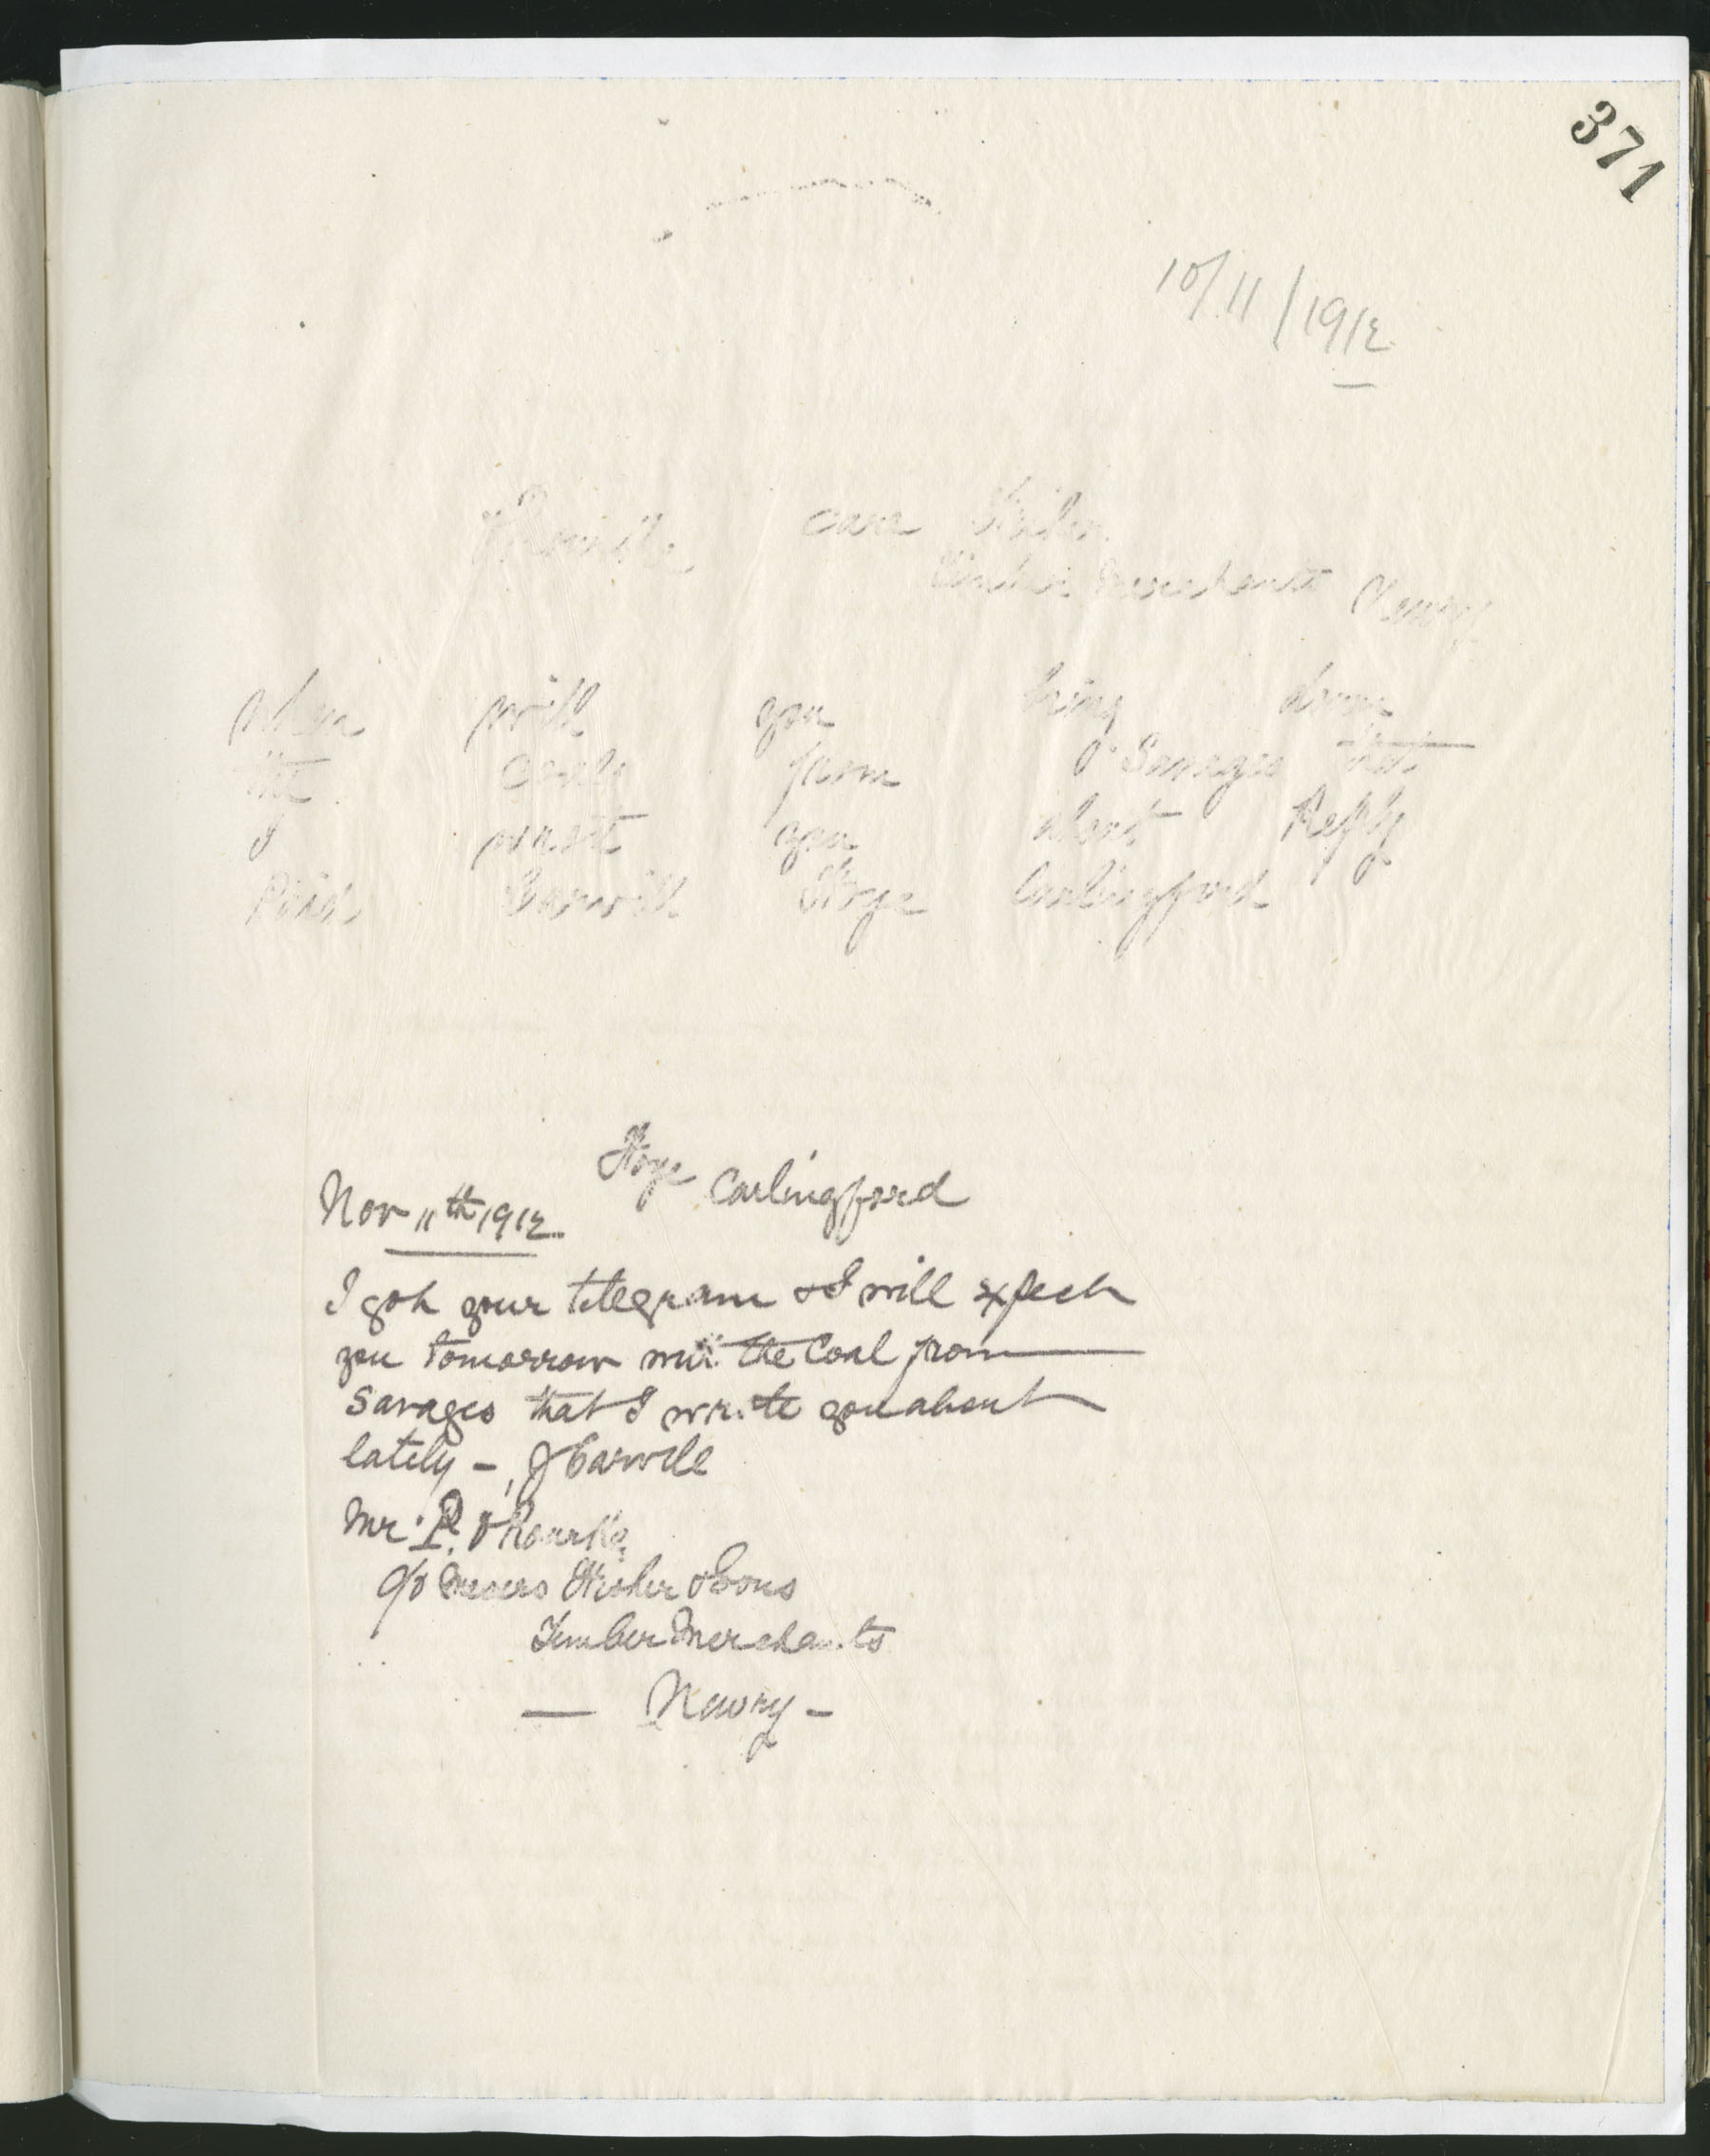 371
10/11/1912
care Fisher
Timber Merchants Newry
when will you bring down
the coals from O'Savages that
I wrote you about Reply
Paid Carvill Stoye Carlingford
Carlingford
Nov 11th 1912
I got your telegram & I will expect
you tomorrow with the Coal from
Savages that I wrote you about
lately - J Carvill
Mr P. O'Rourke
c/o Messrs Fisher & Sons
Timber Merchants
— Newry -